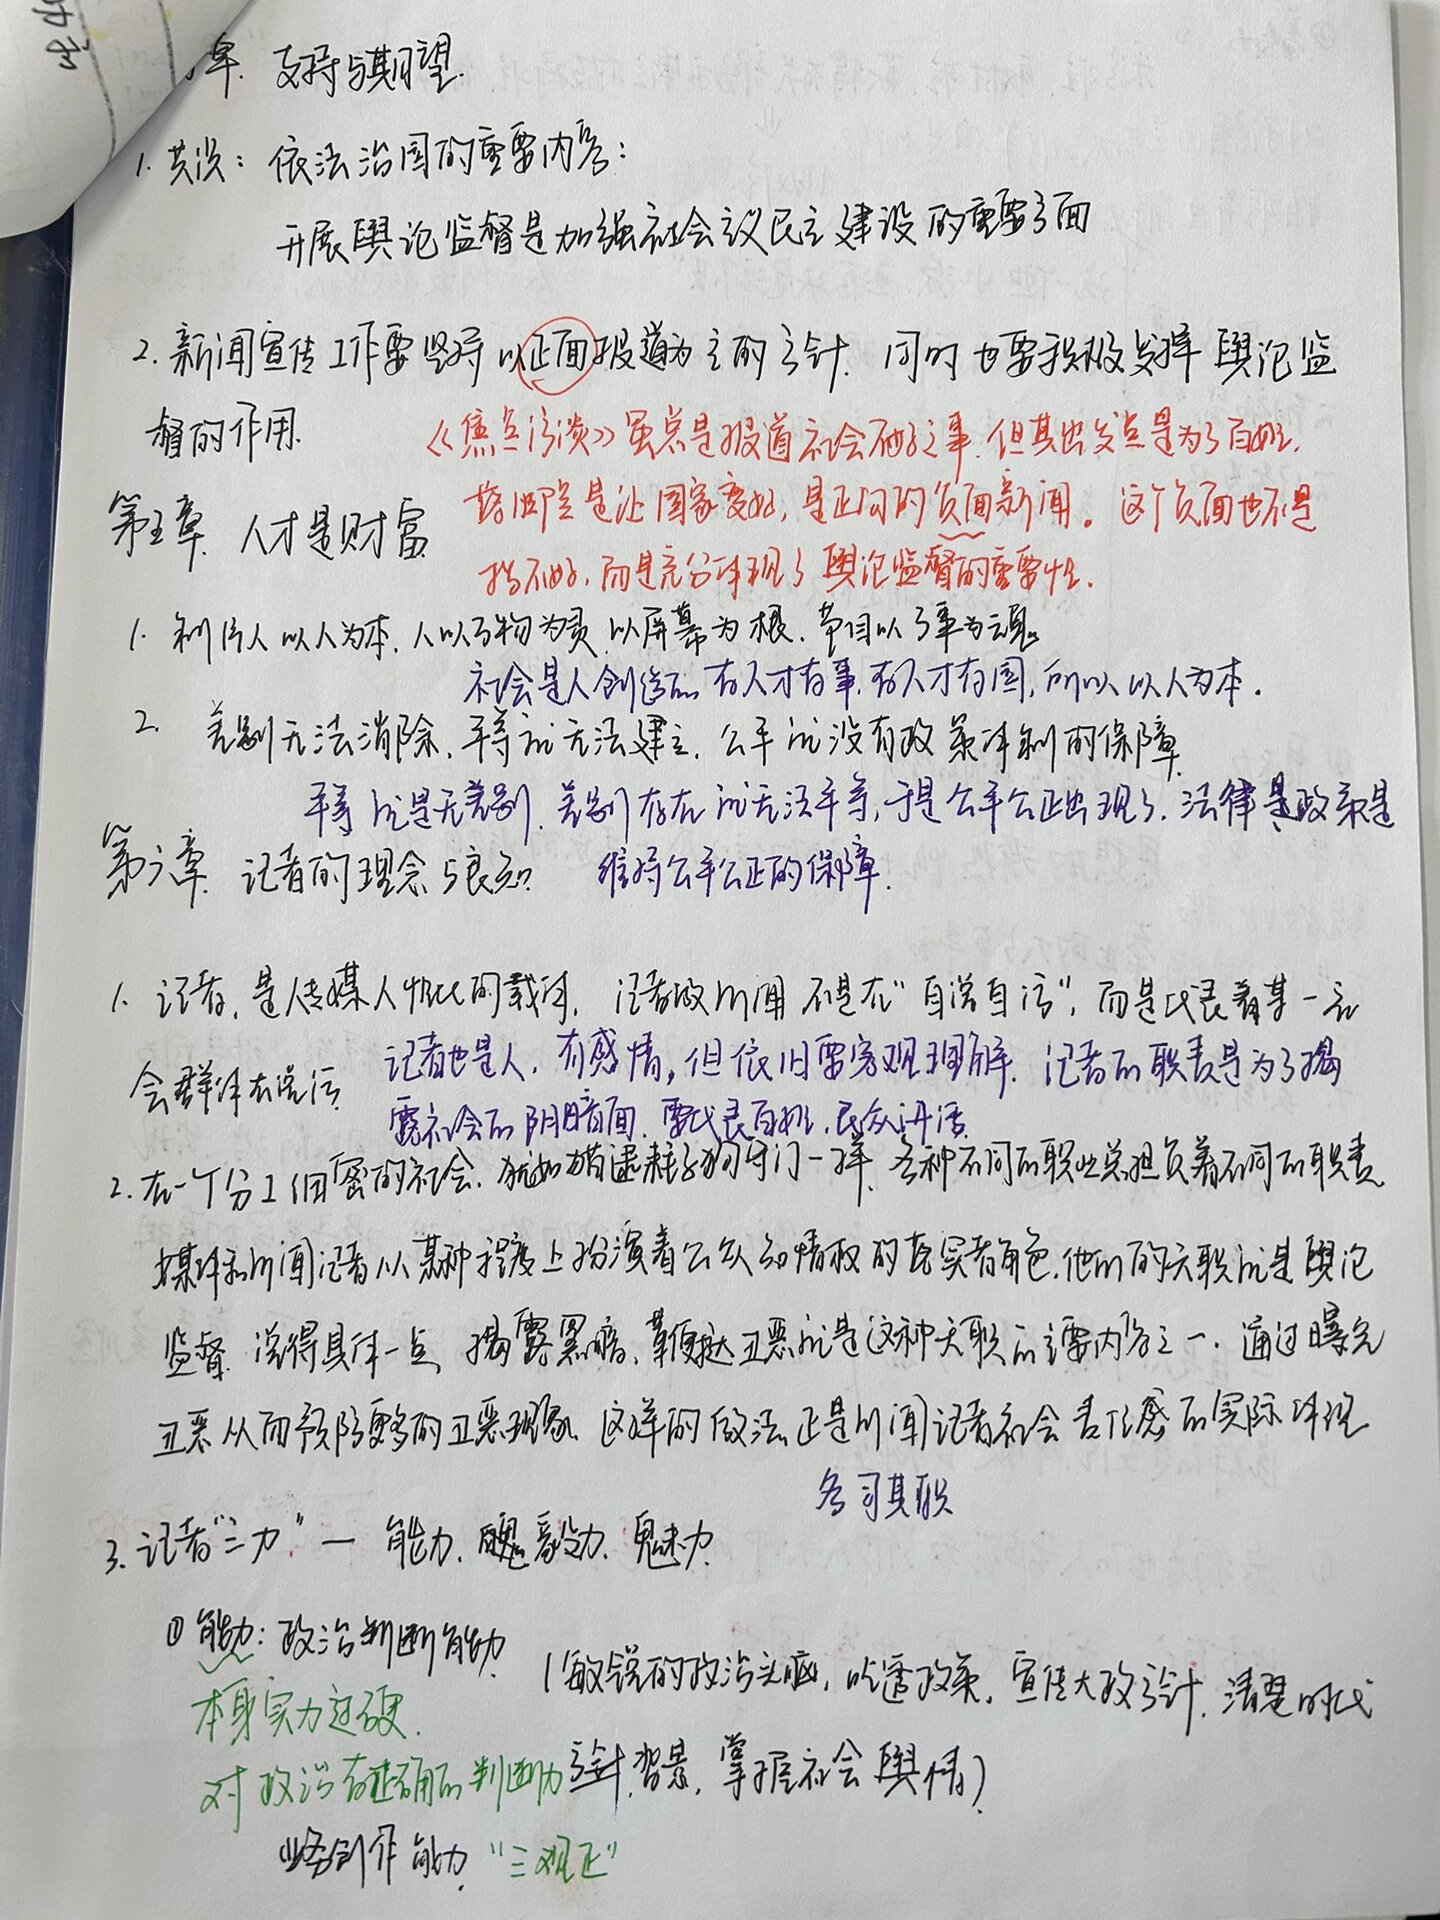 章. 支持与期望.
1. 共识: 依法治国的重要内容:
开展舆论监督是加强社会主义民主建设的重要方面
2. 新闻宣传工作要坚持以正面报道为主的方针. 同时也要积极发挥舆论监
督的作用.
《焦点访谈》虽总是报道社会不好之事. 但其出发点是为了百姓.
是让国家变好, 是正向的负面新闻。这个负面也不是
指不好, 而是充分体现了舆论监督的重要性.
第五章. 人才是财富
1. 制片人以人为本. 人以万物为灵. 以屏幕为根. 节目以了事为魂。
社会是人创造的 有人才有事. 有人才有国, 所以以人为本.
2. 差别无法消除. 平等就无法建立. 公平就没有政策体制的保障.
平等就是无差别. 差别存在就无法平等, 于是公平公正出现了. 法律是政策是
维持公平公正的保障.
第六章. 记者的理念与良知
1. 记者, 是传媒人性化的载体. 记者做新闻不是在"自说自话", 而是代表着某一社
会群体在说话.
记者也是人. 有感情, 但依旧要客观理解. 记者的职责是为了揭
露社会的阴暗面. 要代表百姓. 民众讲话.
2. 在一个分工细密的社会. 犹如猫逮耗子狗守门一样. 各种不同的职业总担负着不同的职责.
媒体和新闻记者从某种程度上扮演着公众知情权的落实者角色. 他们的天职就是舆论
监督. 说得具体一点. 揭露黑暗、鞭挞丑恶就是这种天职的主要内容之一. 通过曝光
丑恶从而预防更多的丑恶现象. 这样的做法正是新闻记者社会责任感的实际体现
各司其职
3. 记者"三力" — 能力. 毅力. 魅力.
① 能力: 政治判断能力.
(敏锐的政治头脑, 吃透政策. 宣传大政方针. 清楚时代
本身实力过硬.
对政治有正确的判断力
方针. 背景. 掌握社会舆情)
业务创作能力. "三观正"